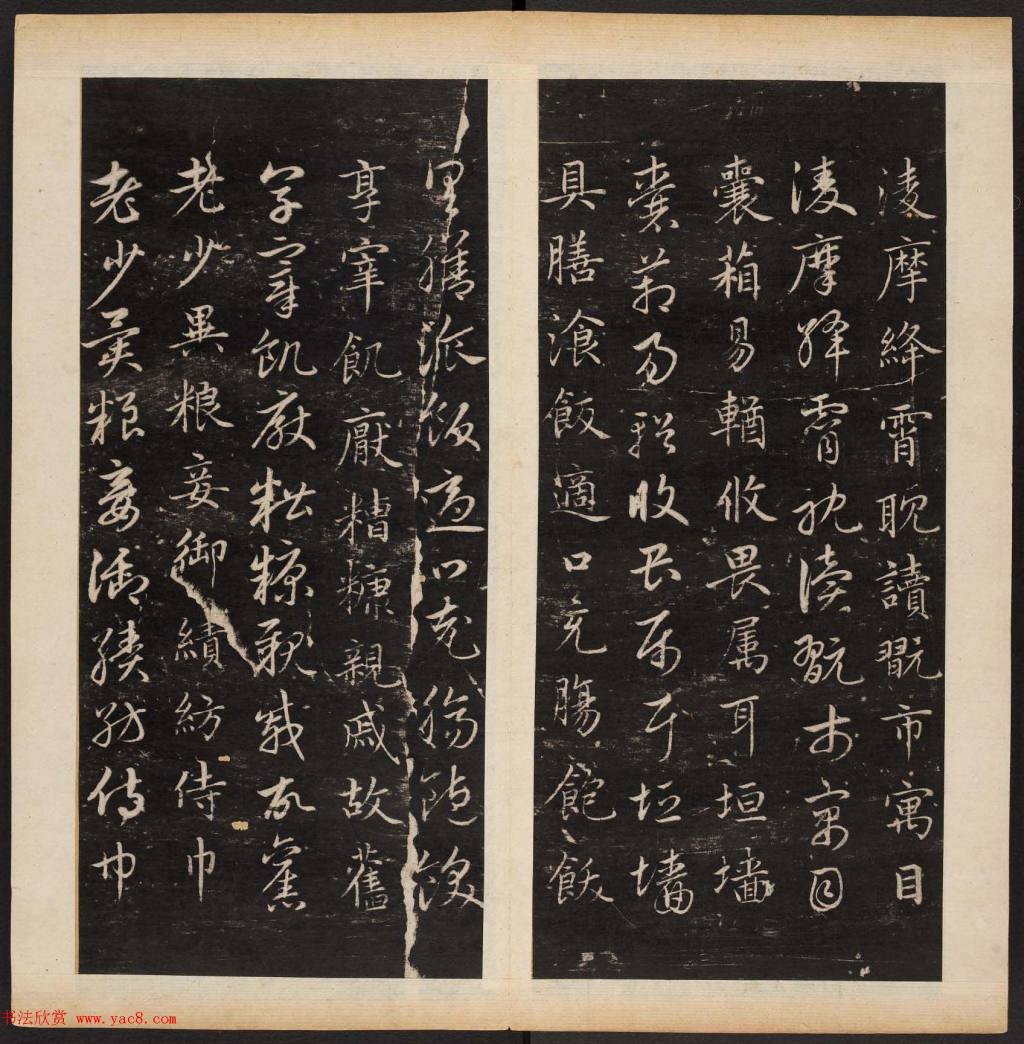 淩摩絳霄耽讀翫市寓目
淩摩絳霄耽讀翫市寓目
囊箱易輶攸畏属耳垣墻
囊箱易輶攸畏属耳垣墻
具膳湌飯適口充腸飽飫
具膳湌飯適口充腸飽飫
享宰飢厭糟糠親戚故舊
享宰飢厭糟糠親戚故舊
老少異粮妾御績紡侍巾
老少異粮妾御績紡侍巾
书法欣赏 www.yac8.com